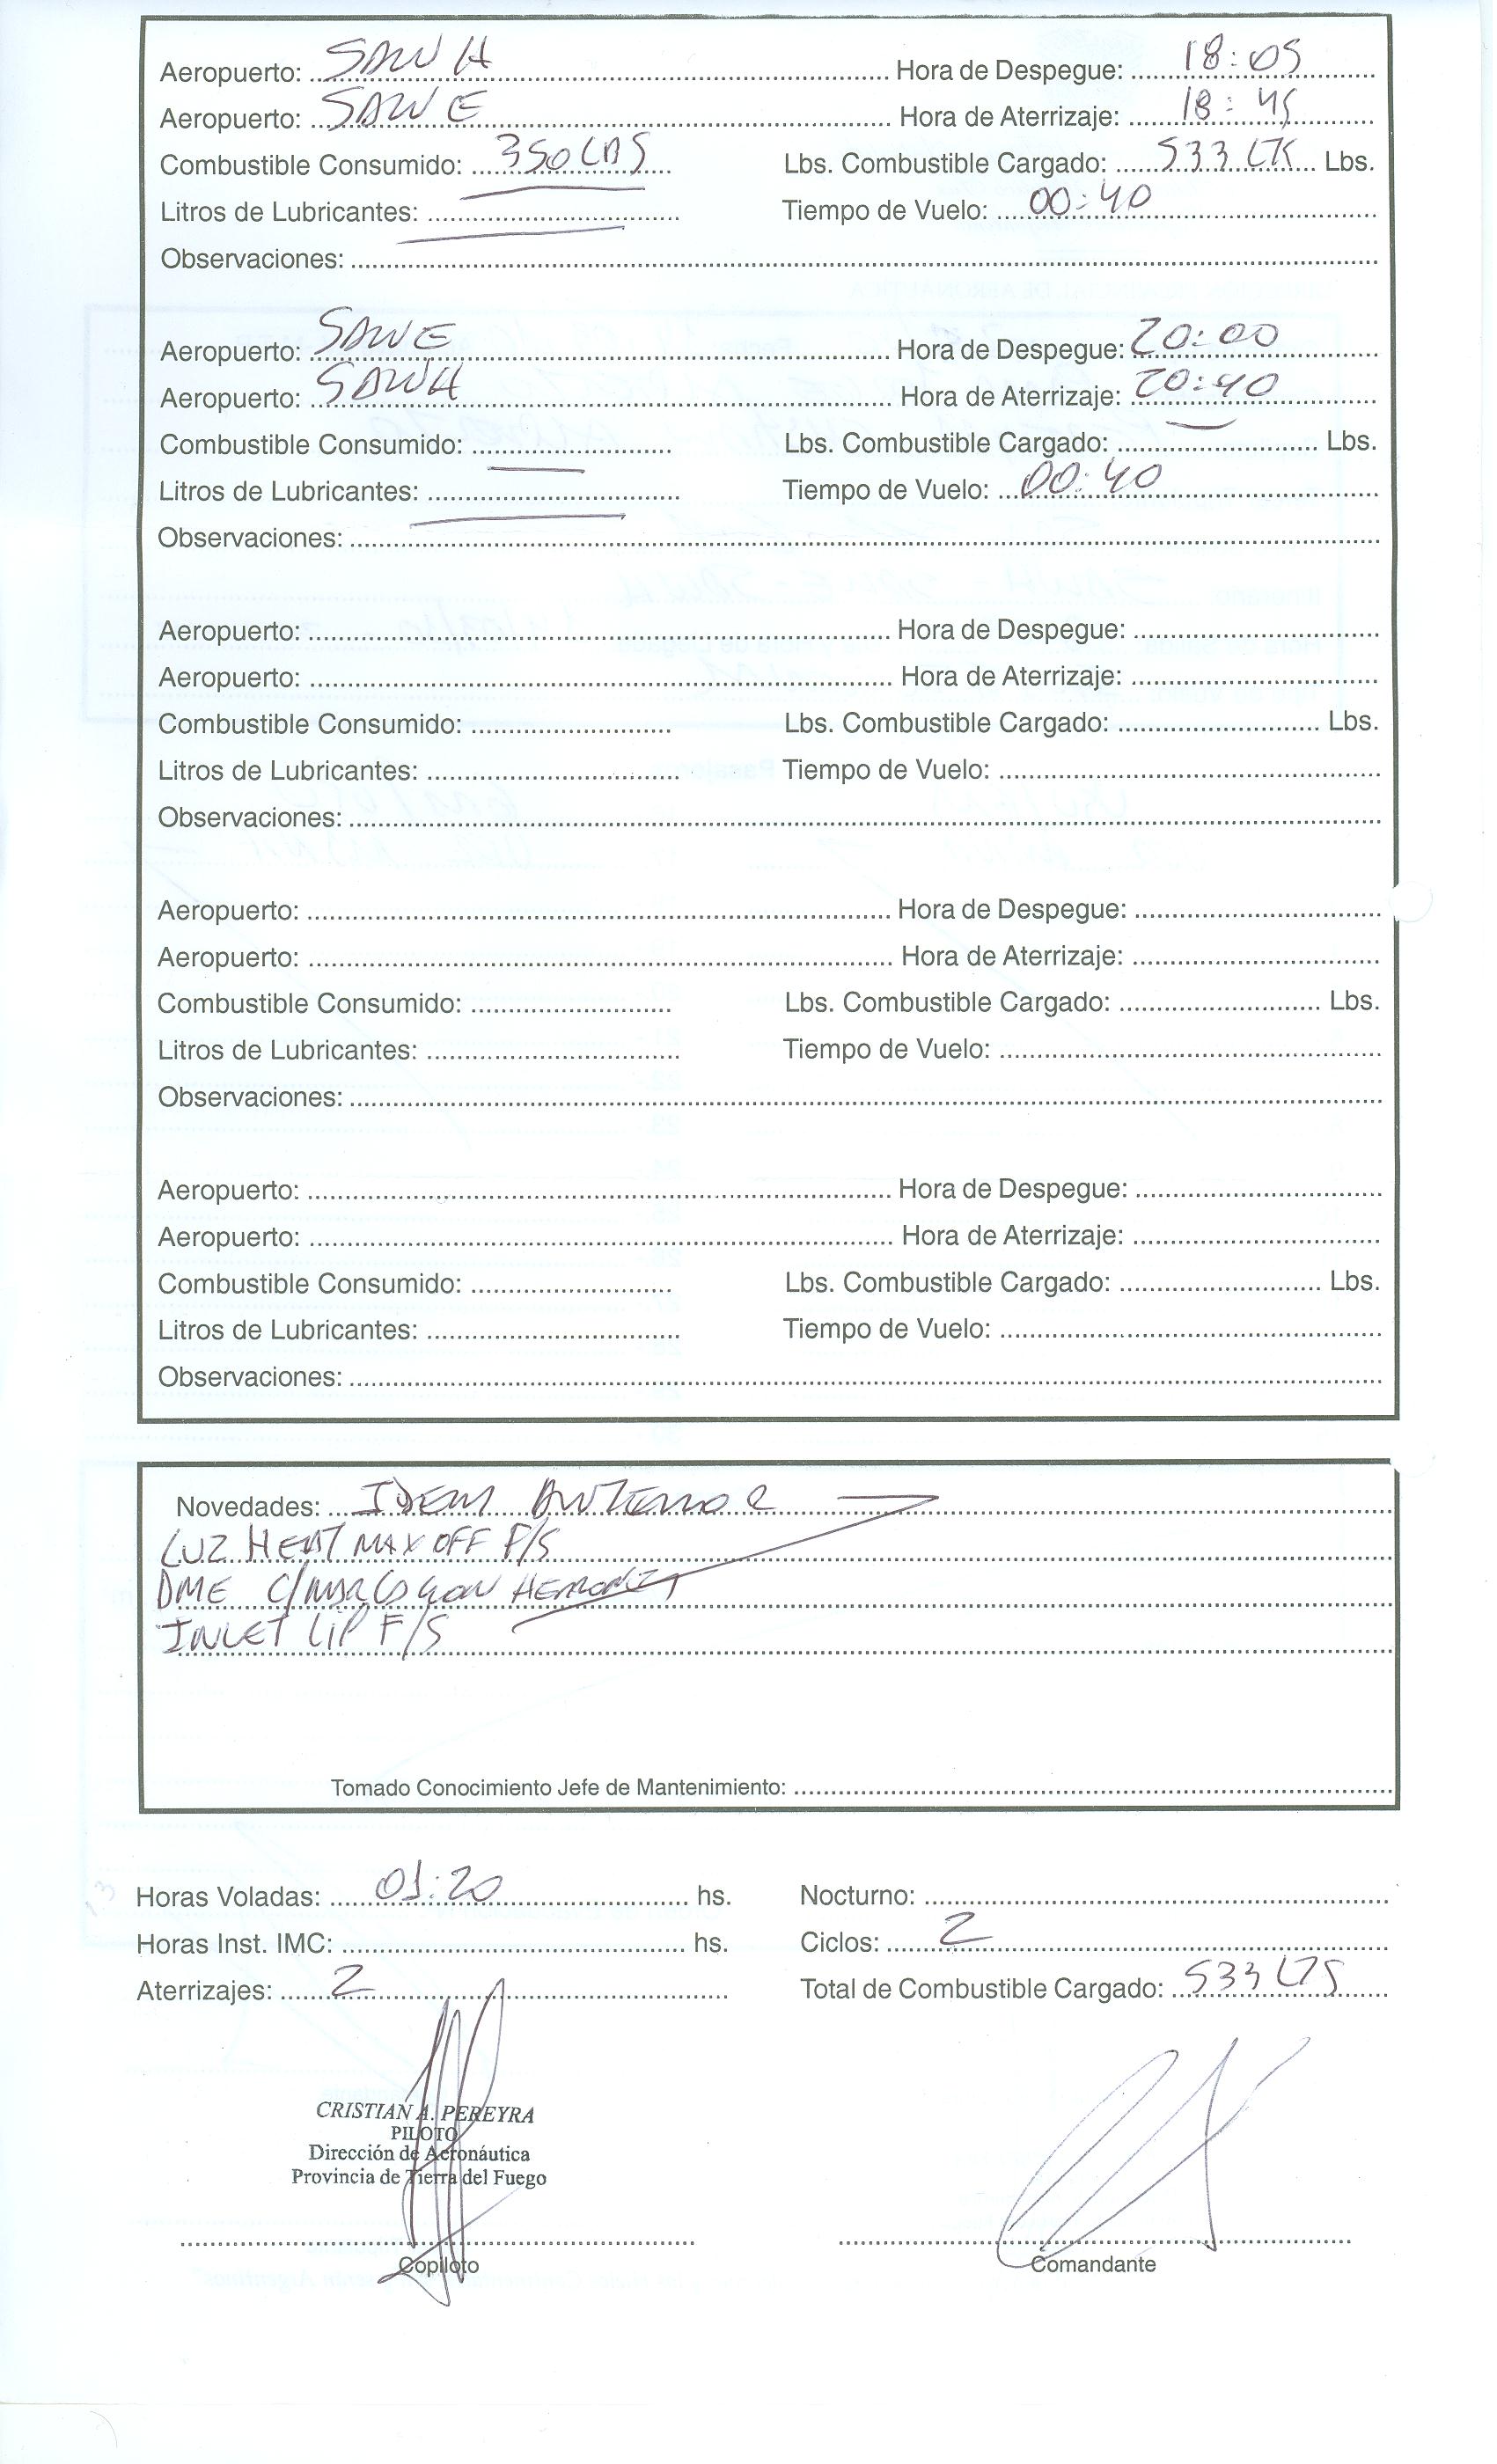 Aeropuerto: SAWH Hora de Despegue: 18:05
Aeropuerto: SAWE Hora de Aterrizaje: 18:45
Combustible Consumido: 350 LBS Lbs. Combustible Cargado: 533 LTS Lbs.
Litros de Lubricantes: Tiempo de Vuelo: 00:40
Observaciones:
Aeropuerto: SAWE Hora de Despegue: 20:00
Aeropuerto: SAWH Hora de Aterrizaje: 20:40
Combustible Consumido: Lbs. Combustible Cargado: Lbs.
Litros de Lubricantes: Tiempo de Vuelo: 00:40
Observaciones:
Aeropuerto: Hora de Despegue:
Aeropuerto: Hora de Aterrizaje:
Combustible Consumido: Lbs. Combustible Cargado: Lbs.
Litros de Lubricantes: Tiempo de Vuelo:
Observaciones:
Aeropuerto: Hora de Despegue:
Aeropuerto: Hora de Aterrizaje:
Combustible Consumido: Lbs. Combustible Cargado: Lbs.
Litros de Lubricantes: Tiempo de Vuelo:
Observaciones:
Aeropuerto: Hora de Despegue:
Aeropuerto: Hora de Aterrizaje:
Combustible Consumido: Lbs. Combustible Cargado: Lbs.
Litros de Lubricantes: Tiempo de Vuelo:
Observaciones:
Novedades: IDEM ANTERIOR
LUZ HEAT MAX OFF F/S
DME
INLET LIP F/S
Tomado Conocimiento Jefe de Mantenimiento:
Horas Voladas: 01:20 hs. Nocturno:
Horas Inst. IMC: hs. Ciclos: 2
Aterrizajes: 2 Total de Combustible Cargado: 533 LTS
CRISTIAN A. PEREYRA
PILOTO
Dirección de Aeronáutica
Provincia de Tierra del Fuego
Copiloto Comandante